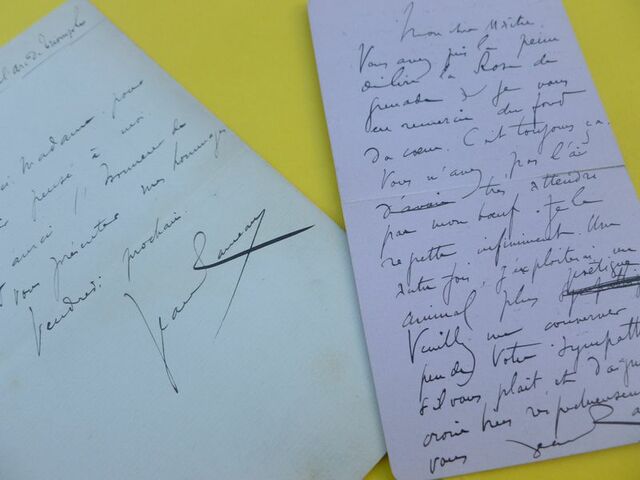 Madame, pour
pensé à moi.
aurai l'honneur de
vous présenter mes hommages
Vendredi prochain.
Jean Rameau
Mon cher Maître,
Vous avez pris la peine
de lire la Rose de
Grenade & je vous
en remercie du fond
du coeur. C'est toujours ça.
Vous n'avez pas l'air
d'avoir très attendri
par mon boeuf. Je le
regrette infiniment. Une
autre fois, j'exploiterai un
animal plus
Veuillez me conserver un
peu de votre sympathie
s'il vous plait et daignez
croire très respectueusement
vous Jean